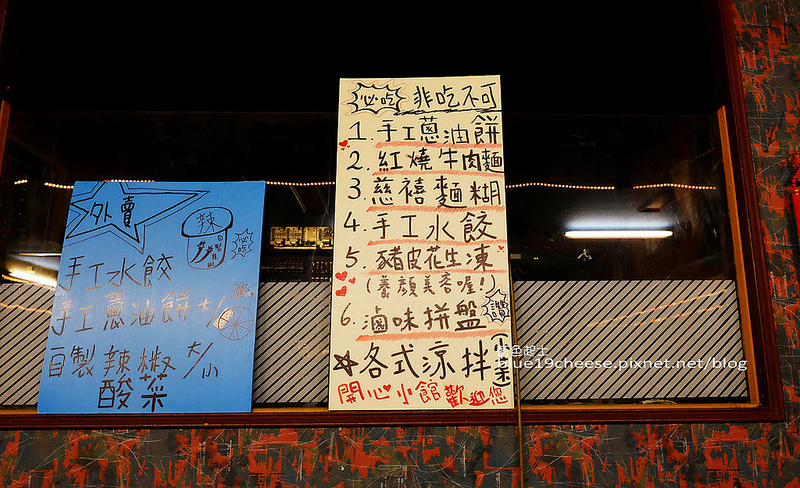 外賣
辣
必吃
手工水餃
手工蔥油餅 大/小
自製辣椒 大/小
酸菜
必吃 非吃不可
1. 手工蔥油餅
2. 紅燒牛肉麵
3. 慈禧麵糊
4. 手工水餃
5. 豬皮花生凍
(養顏美容喔!)
6. 滷味拼盤 讚
各式涼拌小菜
開心小館歡迎您
藍色起士
blue19cheese.pixnet.net/blog